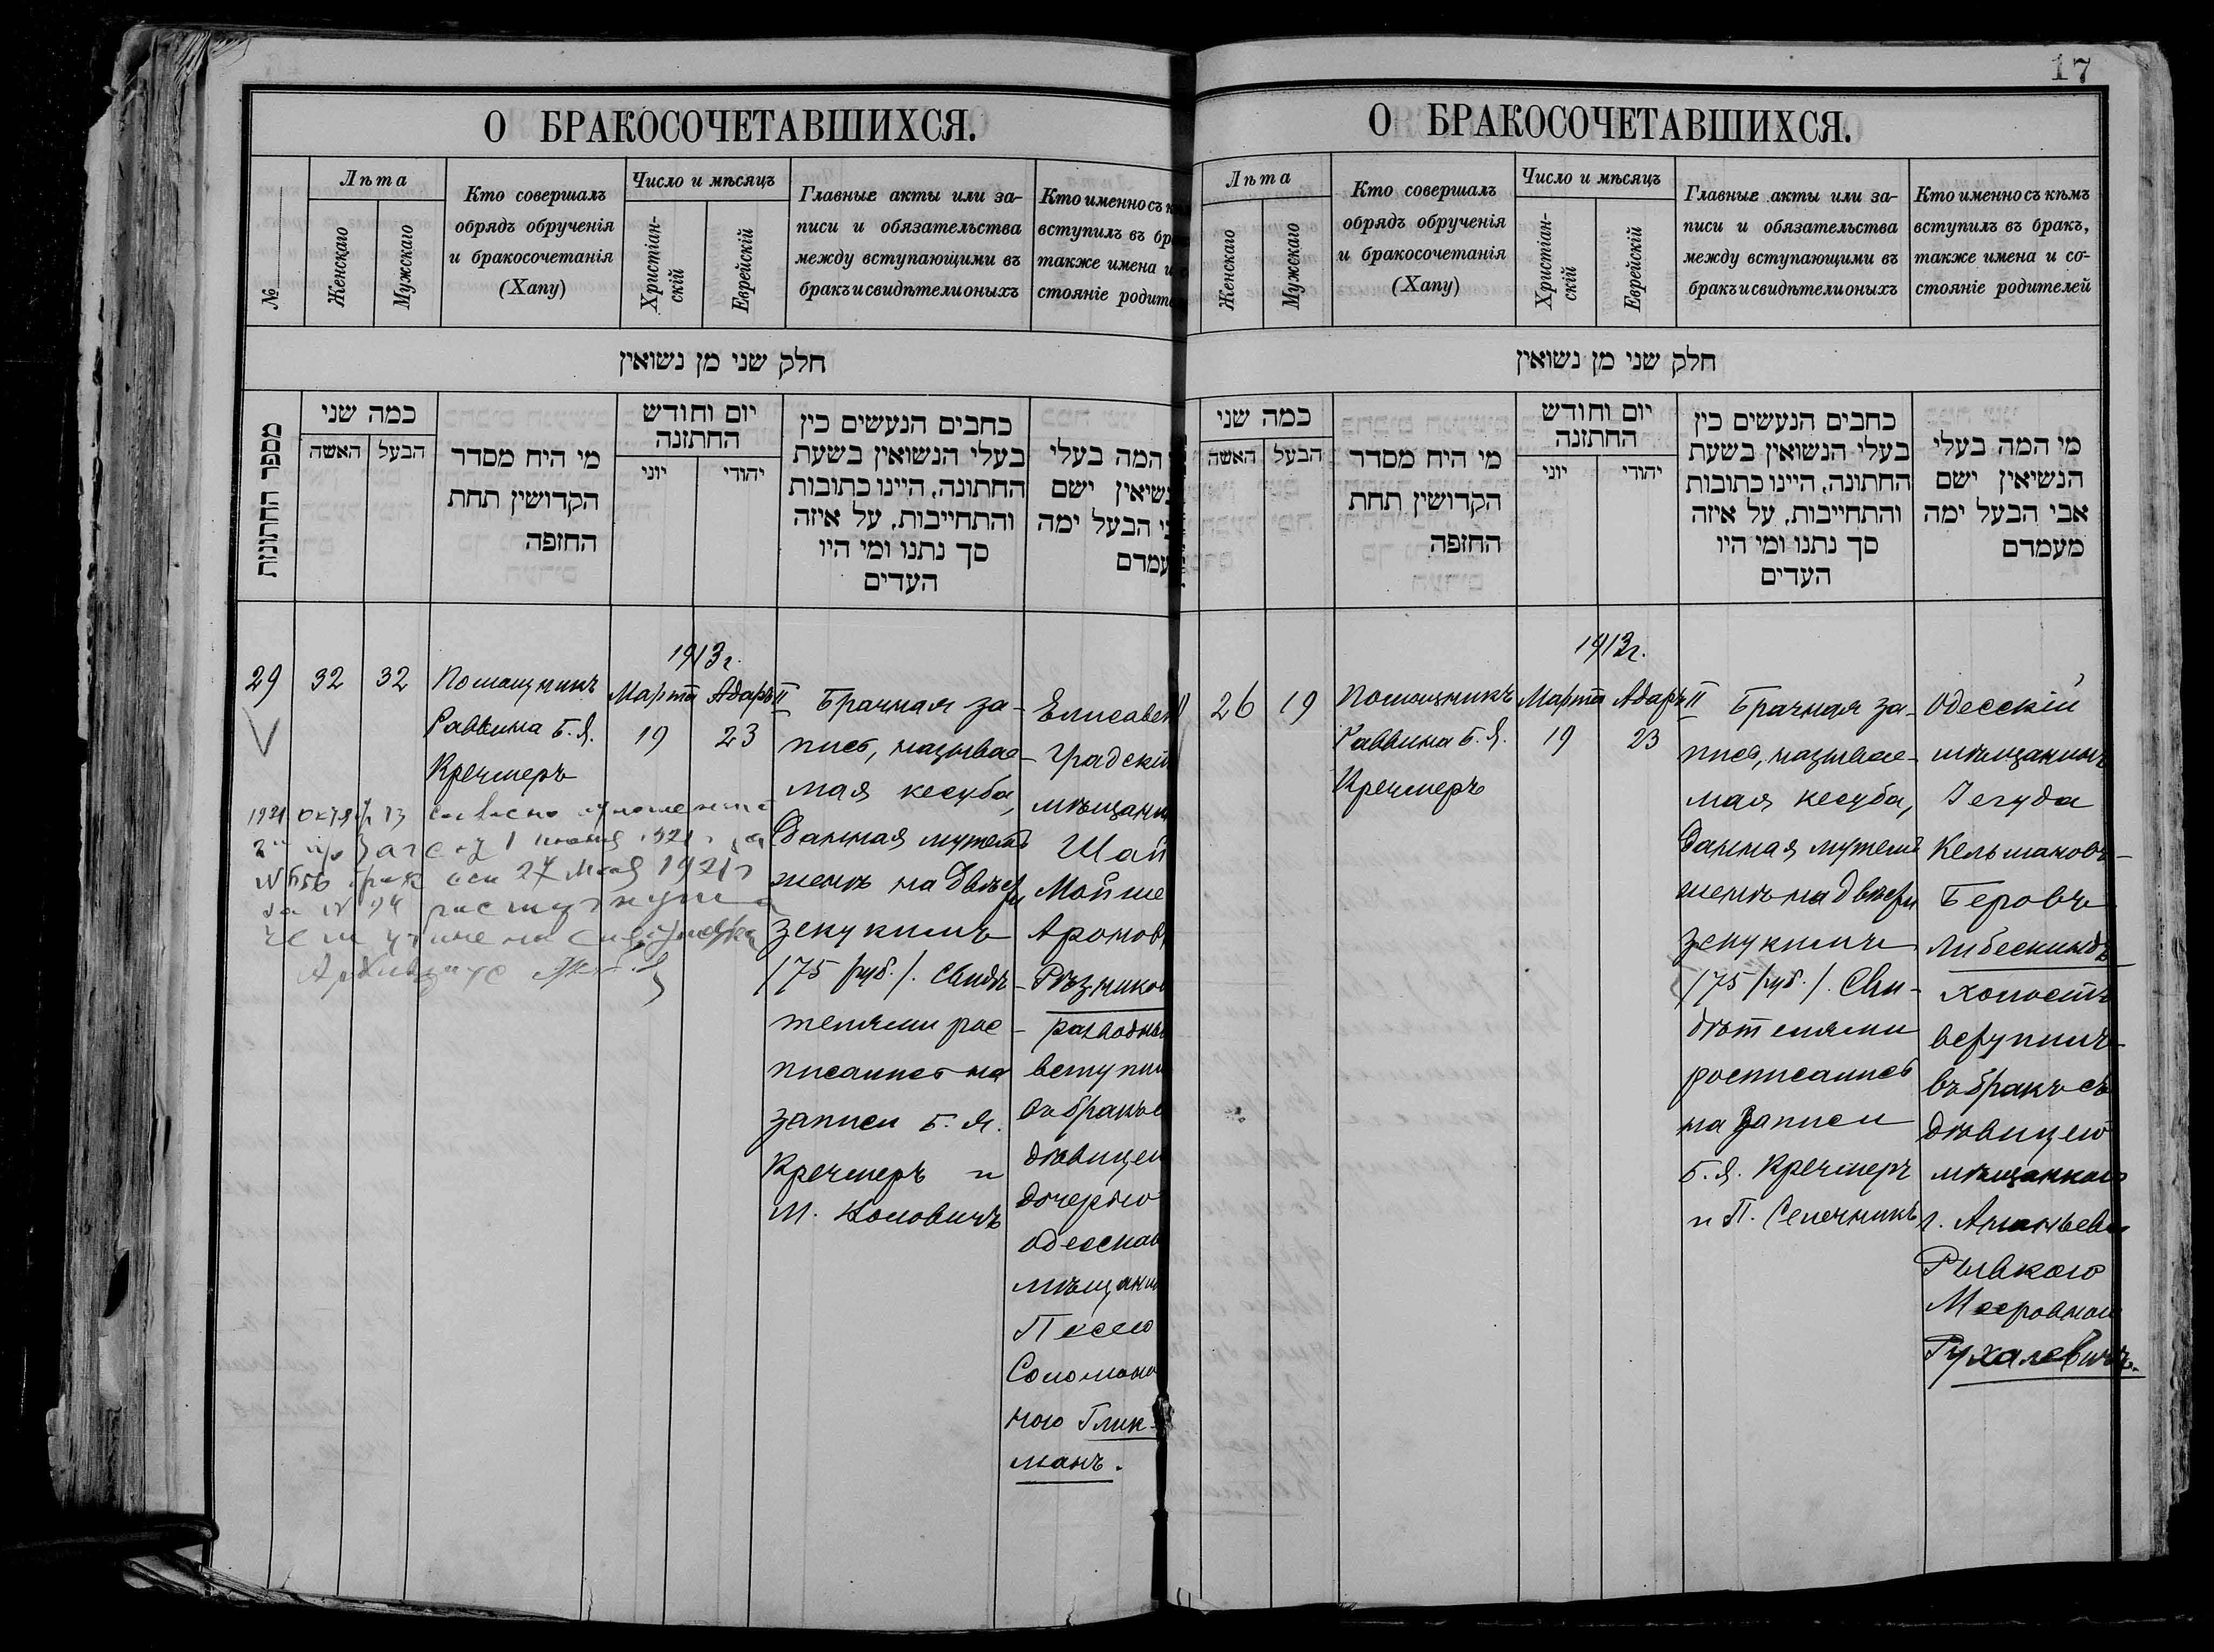 О БРАКОСОЧЕТАВШИХСЯ.
№
Лѣта
Женскаго
Мужскаго
Кто совершалъ
обрядъ обрученія
и бракосочетанія
(Хапу)
Число и мѣсяцъ
Христіан-
скій
Еврейскій
Главные акты или за-
писи и обязательства
между вступающими въ
бракъ и свидѣтели оныхъ
Кто именно съ
вступилъ въ
также имена и
стояніе
חלק שני מן נשואין
מספר החתונות
כמה שני
האשה
הבעל
מי היח מסדר
הקדושין תחת
החזפה
יום וחודש
החתזנה
יוני
יהודי
כחבים הנעשים כין
בעלי הנשואין בשעת
החתונה, היינו כתובות
והתחייבות, על איזה
סך נתנו ומי היו
העדים
המה בעלי
ישם
הבעל ימה
29
32
32
Помощникъ
Раввина Б. Я.
Кречмеръ
1913 г.
Марта
19
Адаръ II
23
Брачная за-
пись, называе-
мая кесуба,
данная мужемъ
женѣ на двѣсти
зекукимъ
/75 руб./. Свидѣ-
телями рос-
писались на
записи Б. Я.
Кречмеръ и
М.
Елисавет
градскі
мѣщани
Шай
Мойше
Аронов
Рѣзников
разводны
вступил
въ бракъ с
дѣвицею
дочерью
одесскаго
мѣщани
Песею
Соломоно
ною Глик-
манъ.
1921
1921 г
27 мая 1921 г
17
О БРАКОСОЧЕТАВШИХСЯ.
Лѣта
Женскаго
Мужскаго
Кто совершалъ
обрядъ обрученія
и бракосочетанія
(Хапу)
Число и мѣсяцъ
Христіан-
скій
Еврейскій
Главные акты или за-
писи и обязательства
между вступающими въ
бракъ и свидѣтели оныхъ
Кто именно съ кѣмъ
вступилъ въ бракъ,
также имена и со-
стояніе родителей
חלק שני מן נשואין
כמה שני
האשה
הבעל
מי היח מסדר
הקדושין תחת
החזפה
יום וחודש
החתזנה
יוני
יהודי
כחבים הנעשים כין
בעלי הנשואין בשעת
החתונה, היינו כתובות
והתחייבות, על איזה
סך נתנו ומי היו
העדים
מי המה בעלי
הנשיאין ישם
אבי הבעל ימה
מעמדם
26
19
Помощникъ
Раввина Б. Я.
Кречмеръ
1913 г.
Марта
19
Адаръ II
23
Брачная за-
пись, называе-
мая кесуба,
данная мужемъ
женѣ на двѣсти
зекукимъ
/75 руб./. Сви-
дѣтелями
росписались
на записи
Б. Я. Кречмеръ
и П. Селечникъ
Одесскій
мѣщанинъ
Іегуда
Кельмановъ-
Беровъ
Либескиндъ
холостъ
вступилъ
въ бракъ съ
дѣвицею
мѣщанкою
г. Ананьева
Рывкою
Мееровною
Рухалевичъ.